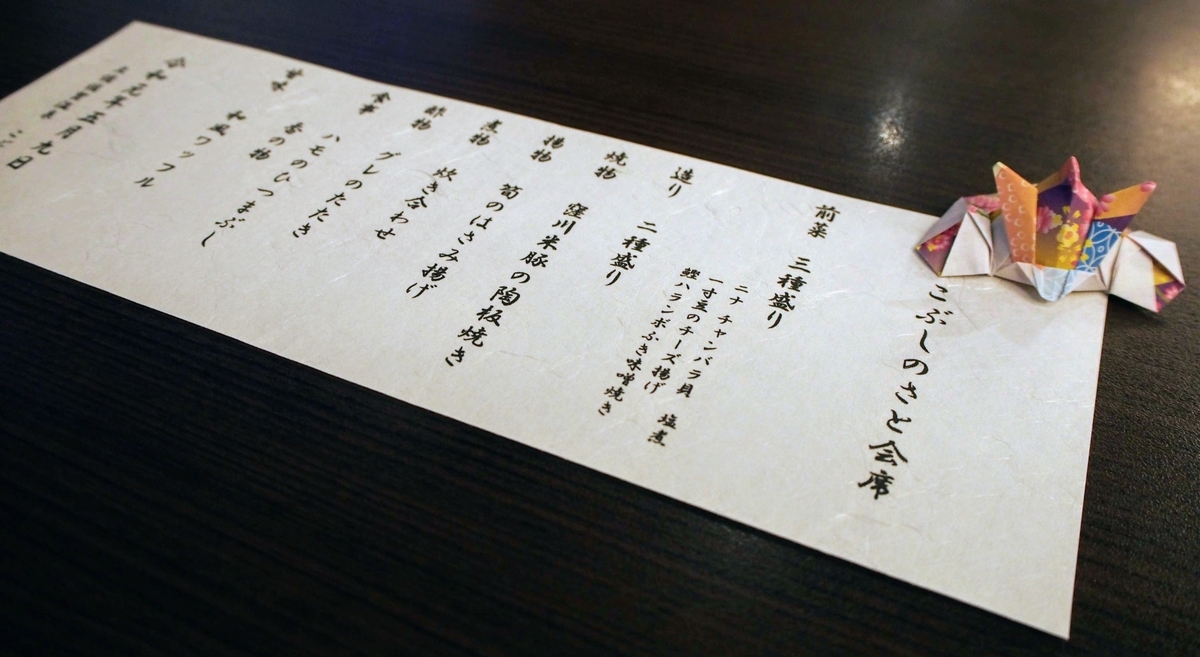 こぶしのさと会席
前菜 三種盛り
ニナ チャンバラ貝 塩煮
一寸豆のチーズ揚げ
鰹ハランボふき味噌焼き
造り 二種盛り
焼物 窪川米豚の陶板焼き
揚物 筍のはさみ揚げ
煮物 炊き合わせ
酢物 グレのたたき
食事 ハモのひつまぶし
香の物
甘味 和風ワッフル
令和元年五月九日